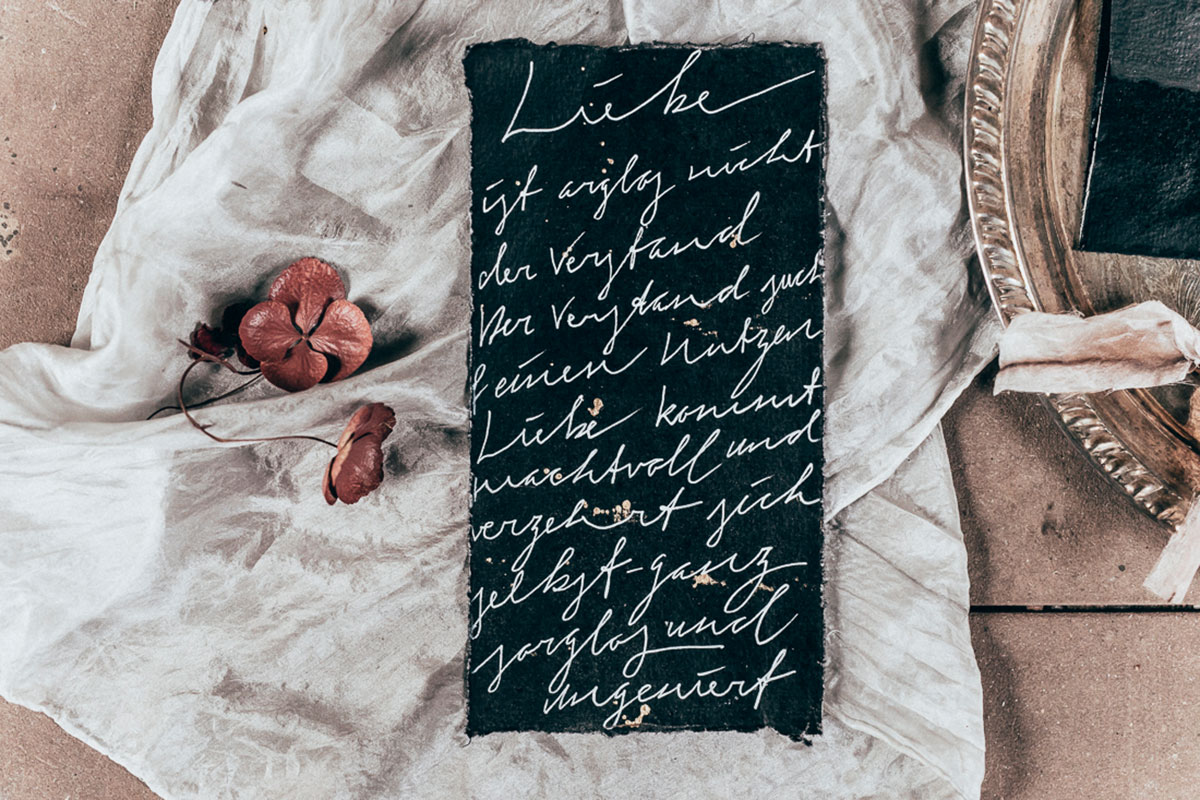 Liebe
ist arglos nicht
der Verstand
Der Verstand sucht
seinen Nutzen
Liebe kommt
machtvoll und
verzehrt sich
selbst - ganz
sorglos und
ungeniert